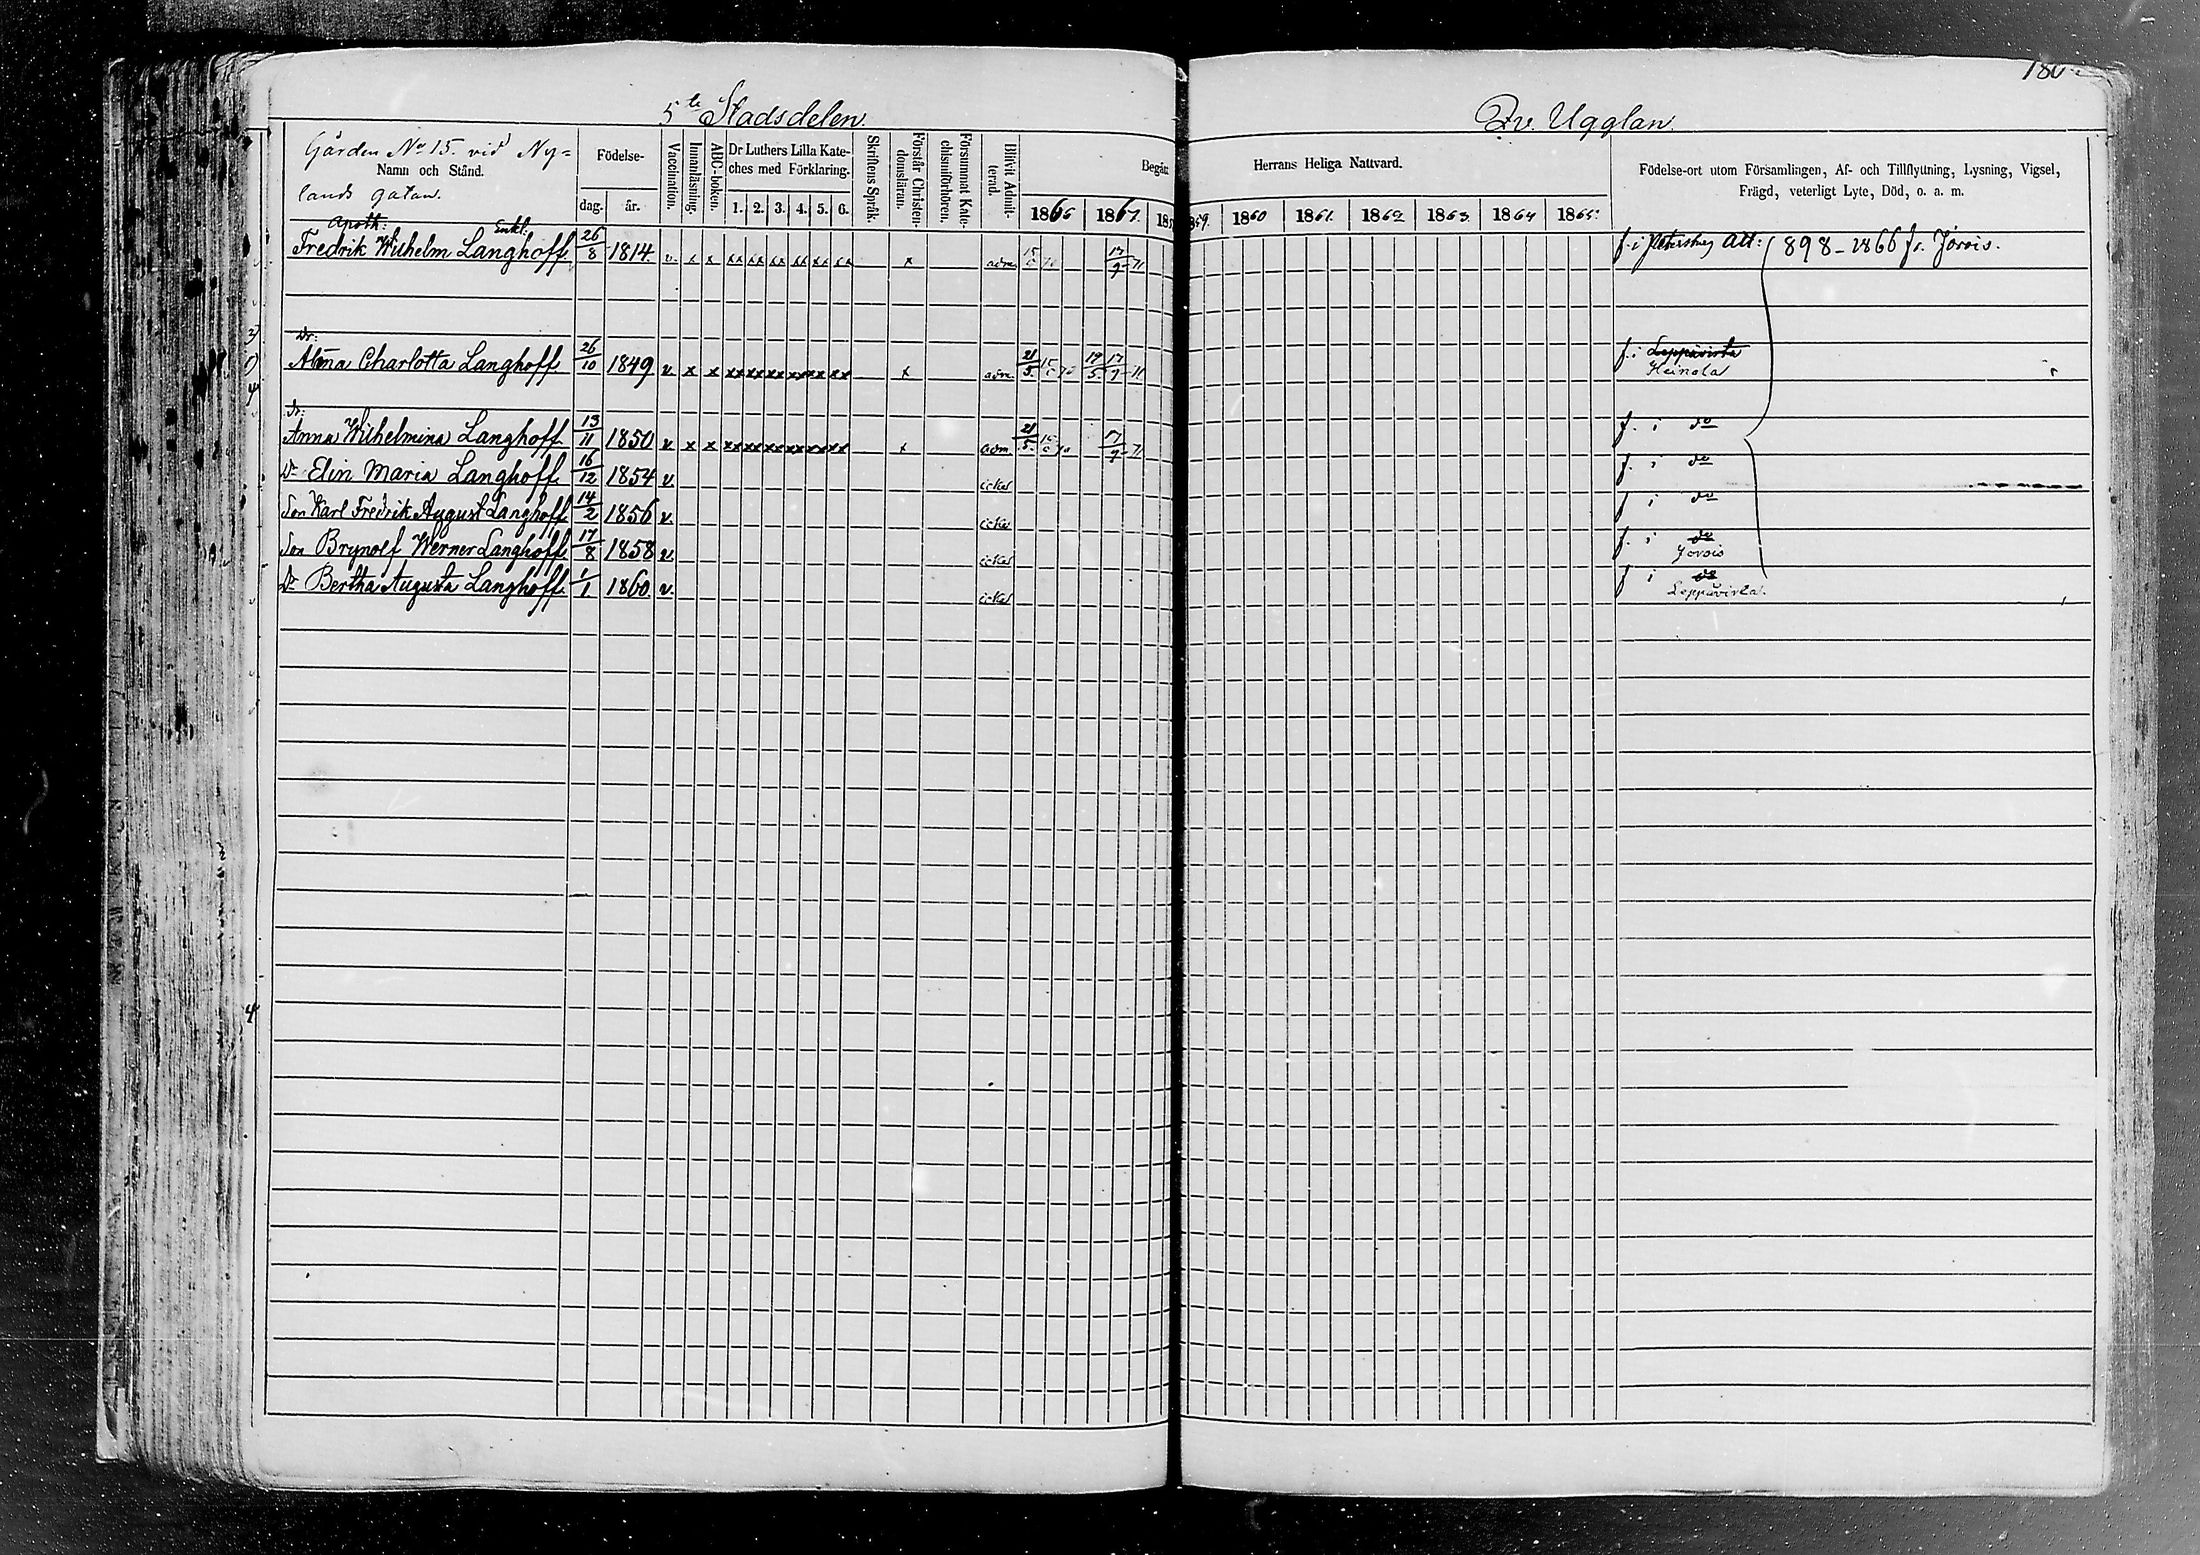 5te Stadsdelen.
Qv. Ugglan.
Gården No 15. vid Ny=
Namn och Stånd.
lands gatan.
Födelse-
dag. år.
Vaccination.
Innanläsning.
ABC-boken.
Dr Luthers Lilla Kate-
ches med Förklaring.
1. 2. 3. 4. 5. 6.
Skriftens Språk.
Förstår Christen-
domsläran.
Försummat Kate-
chismiförhören.
Blifvit Admit-
terad.
Begått
Herrans Heliga Nattvard.
1866 1867. 1860 1861. 1862. 1863. 1864 1865.
Födelse-ort utom Församlingen, Af- och Tillflyttning, Lysning, Vigsel,
Frägd, veterligt Lyte, Död, o. a. m.
Apoth: Enkl:
Fredrik Wilhelm Langhoff 26/8 1814. v. x x xx xx xx xx xx xx x adm 17/9-71 f. i Petersburg Att: 898-1866 fr. Jorois.
Dr:
Alma Charlotta Langhoff 26/10 1849 v. x x xx xx xx xx xx xx x adm 21/5. 19/5. 17/9-71. f. i Leppävirta
Heinola
Dr:
Anna Wilhelmina Langhoff 13/11 1850 v x x xx xx xx xx xx xx x adm 21/5. 17/9-71 f. i do
Dr Elin Maria Langhoff 16/12 1854 v. icke f. i do
Son Karl Fredrik August Langhoff 14/2 1856 v. icke f i do
Son Brynolf Werner Langhoff 17/8 1858 v. icke f. i do
Jorois
Dr Bertha Augusta Langhoff 1/1 1860. v. icke f i do
Leppävirta.